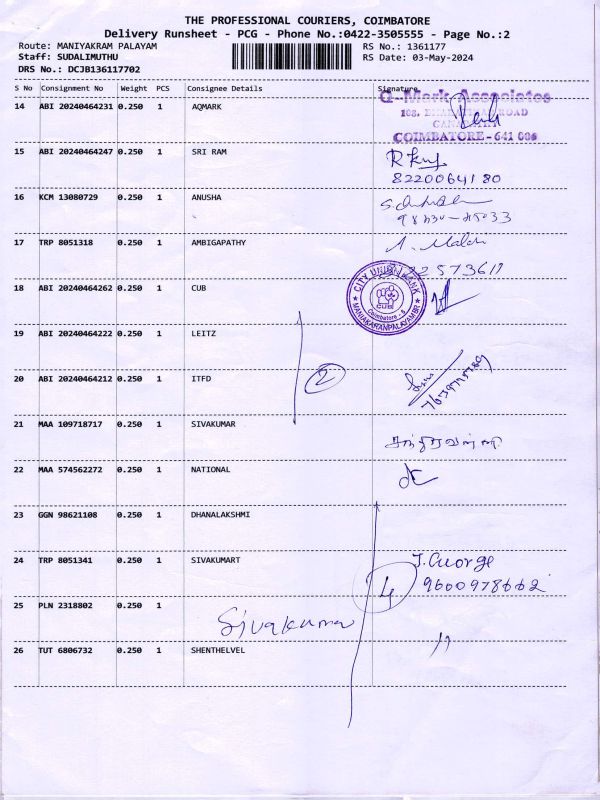 THE PROFESSIONAL COURIERS, COIMBATORE
Delivery Runsheet - PCG - Phone No.:0422-3505555 - Page No.:2
Route: MANIYAKRAM PALAYAM RS No.: 1361177
Staff: SUDALIMUTHU RS Date: 03-May-2024
DRS No.: DCJB136117702
S No Consignment No Weight PCS Consignee Details Signature
Q-Mark Associates
14 ABI 20240464231 0.250 1 AQMARK
ROAD
COIMBATORE - 641 006
15 ABI 20240464247 0.250 1 SRI RAM
8220064180
16 KCM 13080729 0.250 1 ANUSHA
17 TRP 8051318 0.250 1 AMBIGAPATHY
CITY UNION BANK
CUB
Coimbatore - 6
MANIAKARANPALAYAM BR
18 ABI 20240464262 0.250 1 CUB
19 ABI 20240464222 0.250 1 LEITZ
20 ABI 20240464212 0.250 1 ITFD
2
21 MAA 109718717 0.250 1 SIVAKUMAR
22 MAA 574562272 0.250 1 NATIONAL
23 GGN 98621108 0.250 1 DHANALAKSHMI
24 TRP 8051341 0.250 1 SIVAKUMART
J. George
4
25 PLN 2318802 0.250 1
Sivakumar
26 TUT 6806732 0.250 1 SHENTHELVEL